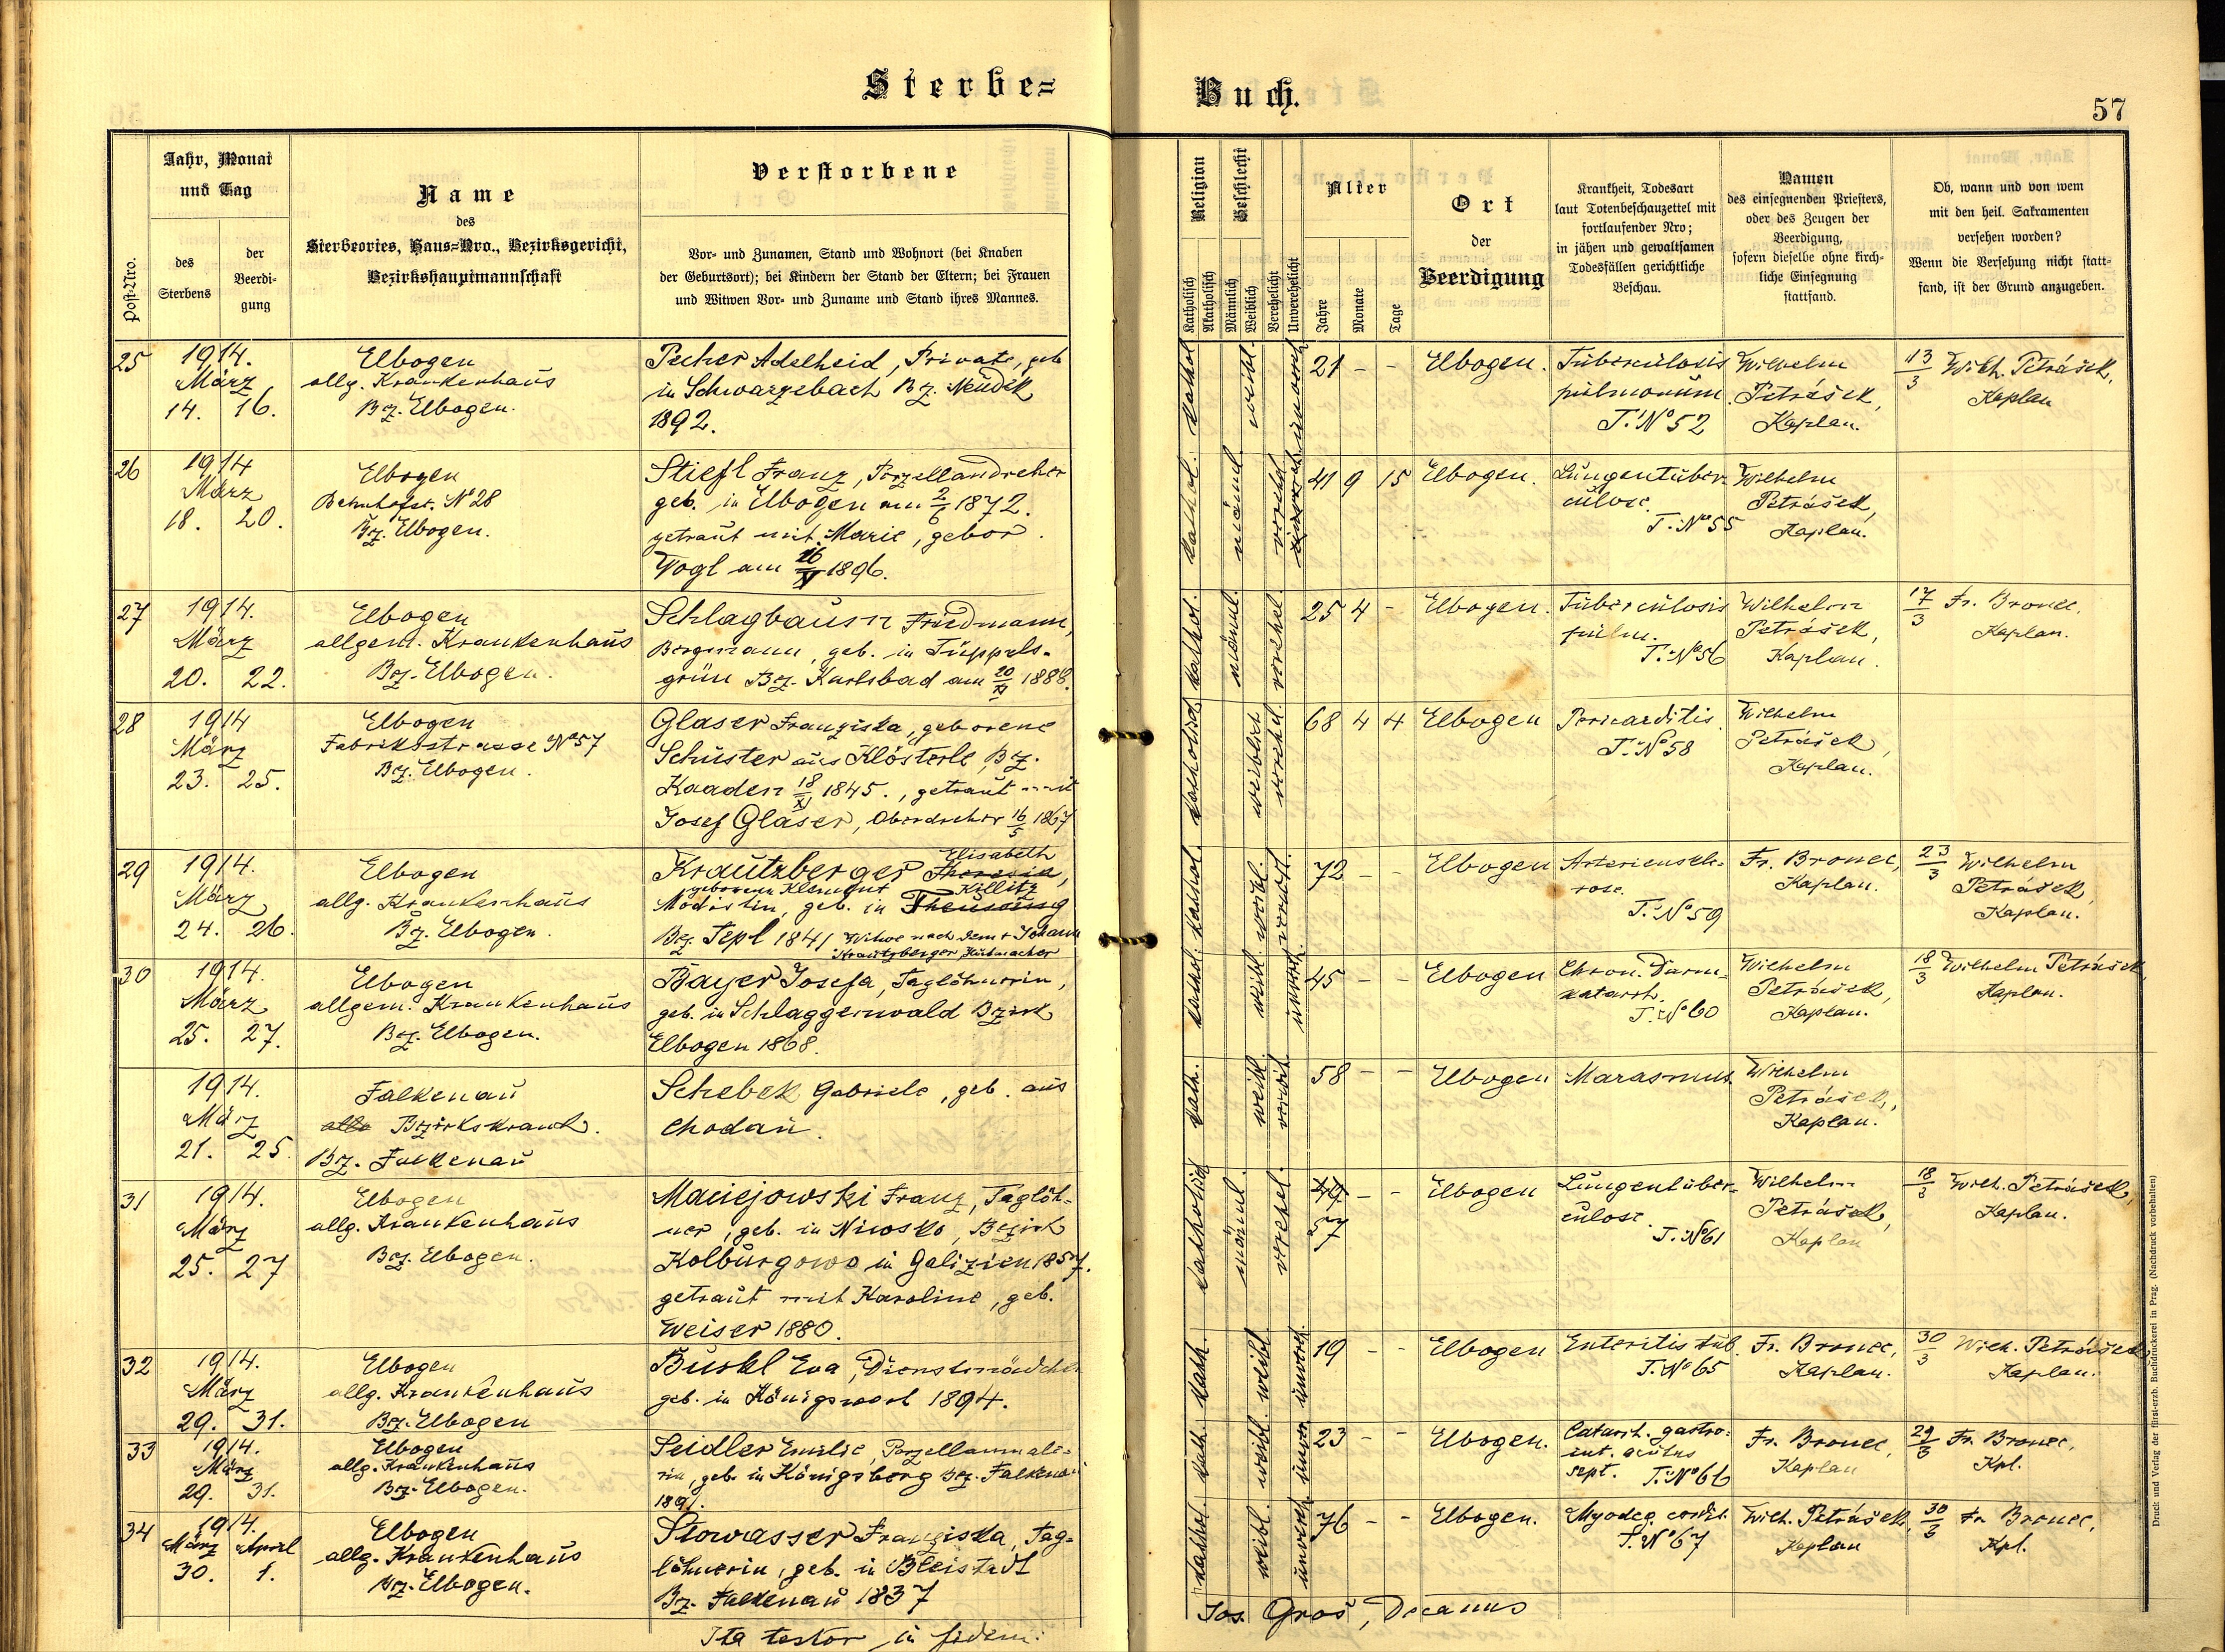 Sterbe=
Buch.
57
Post-Nro.
Jahr, Monat
und Tag
des
Sterbens
der
Beerdi-
gung
Name
des
Sterbeortes, Haus=Nro., Bezirksgericht,
Bezirkshauptmannschaft
Verstorbene
Vor- und Zunamen, Stand und Wohnort (bei Knaben
der Geburtsort); bei Kindern der Stand der Eltern; bei Frauen
und Witwen Vor- und Zuname und Stand ihres Mannes.
Religion
Katholisch
Akatholisch
Geschlecht
Männlich
Weiblich
Verehelicht
Unverehelicht
Alter
Jahre
Monate
Tage
Ort
der
Beerdigung
Krankheit, Todesart
laut Totenbeschauzettel mit
fortlaufender Nro;
in jähen und gewaltsamen
Todesfällen gerichtliche
Beschau.
Namen
des einsegnenden Priesters,
oder des Zeugen der
Beerdigung,
sofern dieselbe ohne kirch-
liche Einsegnung
stattfand.
Ob, wann und von wem
mit den heil. Sakramenten
versehen worden?
Wenn die Versehung nicht statt-
fand, ist der Grund anzugeben.
25
1914.
März
14. 16.
Elbogen
allg. Krankenhaus
Bz. Elbogen.
Pecher Adelheid, Private, geb
in Schwarzebach Bz. Neudek
1892.
kathol. weibl. unvereh
21 - -
Elbogen.
Tuberculosis
pulmonum.
T. No 52
Wilhelm
Petrášek,
Kaplan.
13/3 Wilh. Petrášek,
Kaplan
26
1914
März
18. 20.
Elbogen
Bahnhofst. No 28
Bz. Elbogen.
Stiefl Franz, Porzellandreher
geb. in Elbogen am 2/6 1872.
getraut mit Marie, gebor.
Vogl am 16/XI 1896.
kathol. männl. vereh
41 9 15
Elbogen.
Lungentuber-
culose.
T. No 55
Wilhelm
Petrášek,
Kaplan.
27
1914.
März
20. 22.
Elbogen
allgem. Krankenhaus
Bz. Elbogen.
Schlagbaum Friedmann,
Bergmann, geb. in Tüppels-
grün Bz. Karlsbad am 20/XI 1888.
kathol. männl. verehel.
25 4 -
Elbogen.
Tuberculosis
pulm.
T. No 56
Wilhelm
Petrášek,
Kaplan.
17/3 Fr. Bronec,
Kaplan.
28
1914
März
23. 25.
Elbogen
Fabriksstrasse No 57
Bz. Elbogen.
Glaser Franziska, geborene
Schuster aus Klösterle, Bz.
Kaaden 18/XI 1845., getraut mit
Josef Glaser, Oberdreher 16/5 1867
katholisch weiblich verehel.
68 4 4
Elbogen
Pericarditis
T. No 58
Wilhelm
Petrášek,
Kaplan.
29
1914.
März
24. 26.
Elbogen
allg. Krankenhaus
Bz. Elbogen.
Elisabeth
Krautzberger Theresia,
geborene Klement Köllitz
Modistin, geb. in Theusing
Bez. Tepl 1841 Witwe nach dem + Johann
Krautzberger, Hutmacher
kathol. weibl. verwit.
72 - -
Elbogen
Arterienscle-
rose.
T. No 59
Fr. Bronec,
Kaplan.
23/3 Wilhelm
Petrášek,
Kaplan.
30
1914.
März
25. 27.
Elbogen
allgem. Krankenhaus
Bz. Elbogen.
Bayer Josefa, Taglöhnerin,
geb. in Schlaggenwald Bzirk
Elbogen 1868.
kathol. weibl. unvereh.
45 - -
Elbogen
Chron. Darm-
katarrh.
T. No 60
Wilhelm
Petrášek,
Kaplan.
18/3 Wilhelm Petrášek
Kaplan.
1914.
März
21. 25.
Falkenau
allg Bzirkskrank.
Bz. Falkenau
Schebek Gabriele, geb. aus
Chodau.
kath. weibl. verwit.
58 - -
Elbogen
Marasmus.
Wilhelm
Petrášek,
Kaplan.
31
1914.
März
25. 27
Elbogen
allg. Krankenhaus
Bz. Elbogen.
Maciejowski Franz, Taglöh-
ner, geb. in Niwsko, Bezirk
Kolburgowo in Galizien 1857.
getraut mit Karoline, geb.
Weiser 1880.
katholisch männl. verehel.
57 - -
Elbogen
Lungentuber-
culose.
T. No 61
Wilhelm
Petrášek,
Kaplan
18/3 Wilh. Petrášek,
Kaplan.
32
1914.
März
29. 31.
Elbogen
allg. Krankenhaus
Bz. Elbogen
Buskl Eva, Dienstmädchen
geb. in Königswart 1894.
kath. weibl. unvereh.
19 - -
Elbogen
Enteritis tub.
T. No 65
Fr. Bronec,
Kaplan.
30/3 Wilh. Petrášek
Kaplan.
33
1914.
März
29. 31.
Elbogen
allg. Krankenhaus
Bz. Elbogen.
Seidler Emilie, Porzellanmale-
rin, geb. in Königsberg Bez. Falkenau
1891.
kath. weibl. unver.
23 - -
Elbogen.
Catarrh. gastro-
int. acutus
sept. T. No 66
Fr. Bronec,
Kaplan
29/3 Fr. Bronec,
Kpl.
34
1914.
März April
30. 1.
Elbogen
allg. Krankenhaus
Bz. Elbogen.
Stowasser Franziska, Tag-
löhnerin, geb. in Bleistadt
Bz. Falkenau 1837
kathol. weibl. unvereh.
76 - -
Elbogen.
Myodeg. cordis.
T. No 67
Wilh. Petrášek,
Kaplan
30/3 Fr Bronec,
Kpl.
Ita testor in fidem:
Jos. Groš, Decanus
Druck und Verlag der fürst-erzb. Buchdruckerei in Prag. (Nachdruck vorbehalten)